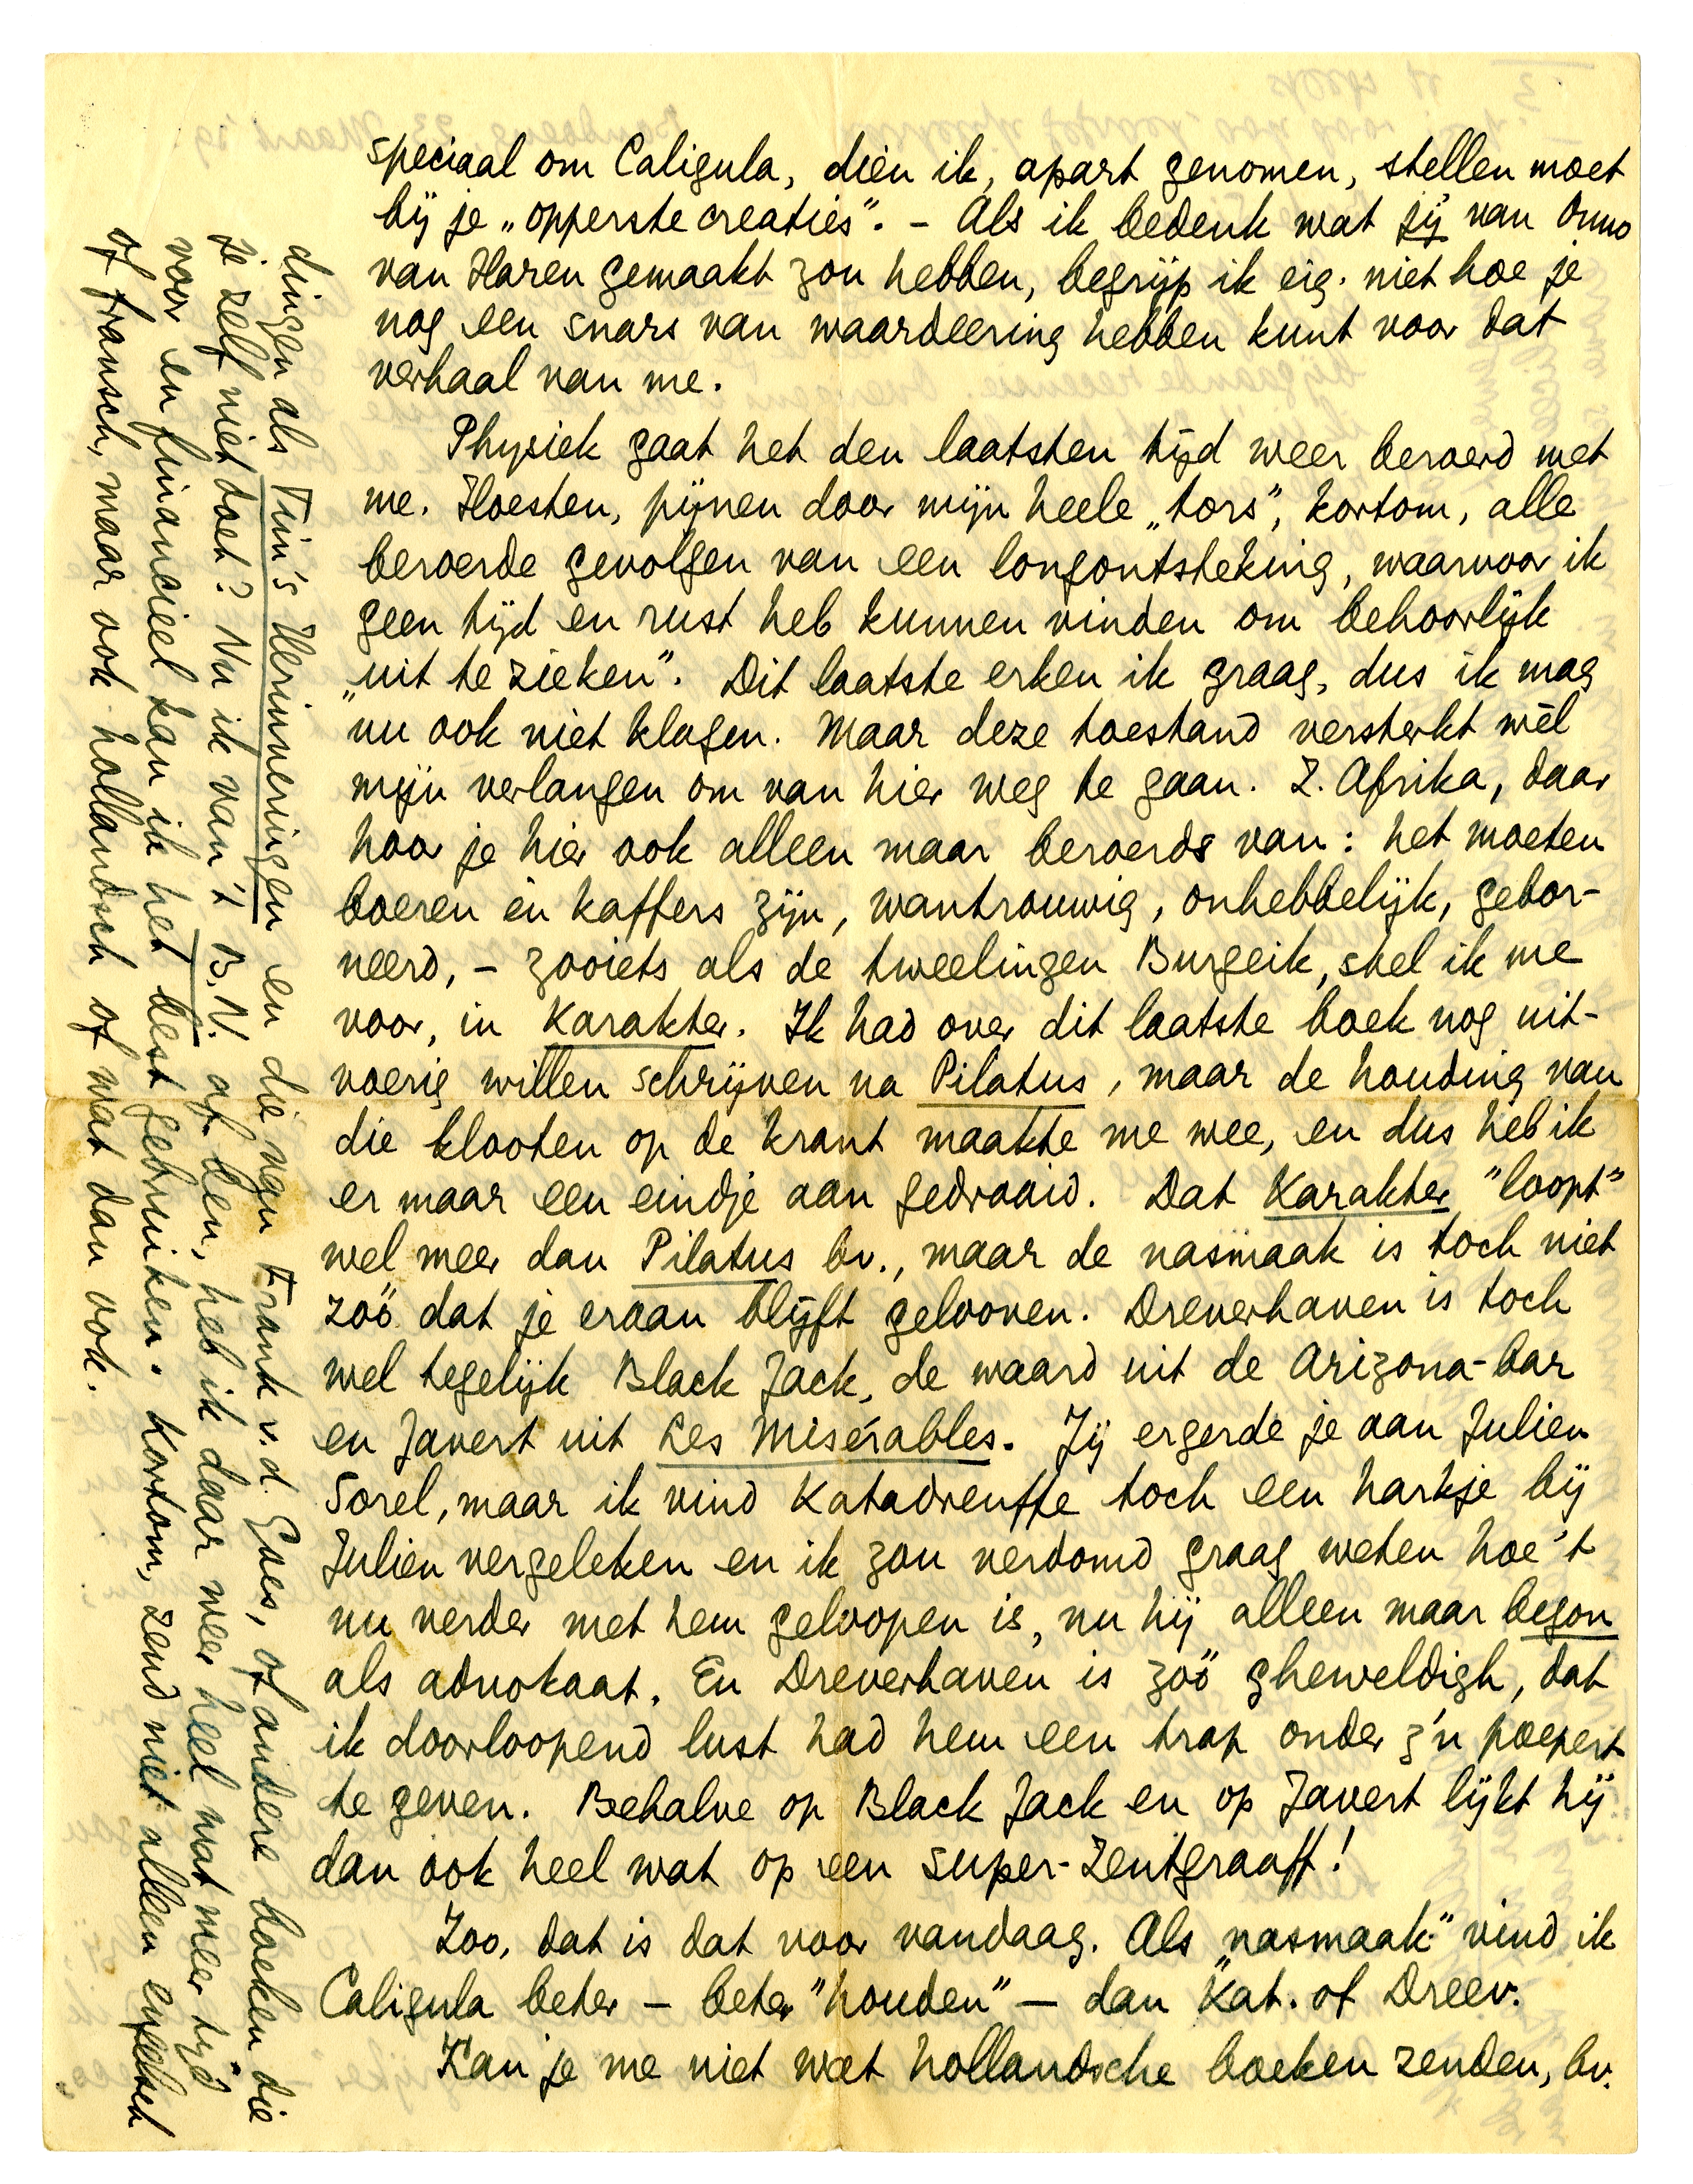 speciaal om Caligula, dièn ik, apart genomen, stellen moet
bij je „opperste creaties". – Als ik bedenk wat jij van Onno
van Haren gemaakt zou hebben, begrijp ik eig. niet hoe je
nog een snars van waardeering hebben kunt voor dat
verhaal van me.
Physiek gaat het den laatsten tijd weer beroerd met
me. Hoesten, pijnen door mijn heele „tors", kortom, alle
beroerde gevolgen van een longontsteking, waarvoor ik
geen tijd en rust heb kunnen vinden om behoorlijk
„uit te zieken". Dit laatste erken ik graag, dus ik mag
nu ook niet klagen. Maar deze toestand versterkt wèl
mijn verlangen om van hier weg te gaan. Z. Afrika, daar
hoor je hier ook alleen maar beroerds van: het moeten
boeren èn kaffers zijn, wantrouwig, onhebbelijk, gebor-
neerd, – zooiets als de tweelingen Burgeik, stel ik me
voor, in Karakter. Ik had over dit laatste boek nog uit-
voerig willen schrijven na Pilatus, maar de houding van
die klooten op de krant maakte me wee, en dus heb ik
er maar een eindje aan gedraaid. Dat Karakter "loopt"
wel meer dan Pilatus bv., maar de nasmaak is toch niet
zóó dat je eraan blijft gelooven. Dreverhaven is toch
wel tegelijk Black Jack, de waard uit de Arizona-bar
en Javert uit Les Misérables. Jij ergerde je aan Julien
Sorel, maar ik vind Katadreuffe toch een harkje bij
Julien vergeleken en ik zou verdomd graag weten hoe 't
nu verder met hem geloopen is, nu hij alleen maar begon
als advokaat. En Dreverhaven is zóó gheweldigh, dat
ik doorloopend lust had hem een trap onder z'n poepert
te geven. Behalve op Black Jack en op Javert lijkt hij
dan ook heel wat op een super-Zentgraaff!
Zoo, dat is dat voor vandaag. Als "nasmaak" vind ik
Caligula beter – beter "houden" – dan Kat. of Dreev.
Kan je me niet wat hollandsche boeken zenden, bv.
dingen als Tin's Herinneringen en die van Frank v.d. Goes, of andere boeken die
je zelf niet doet? Nu ik van 't B.N. af ben, heb ik daar weer heel wat meer tijd
voor en financieel kan ik het best gebruiken. Kortom, zend niet alleen engelsch
of fransch, maar ook hollandsch of wat dan ook.